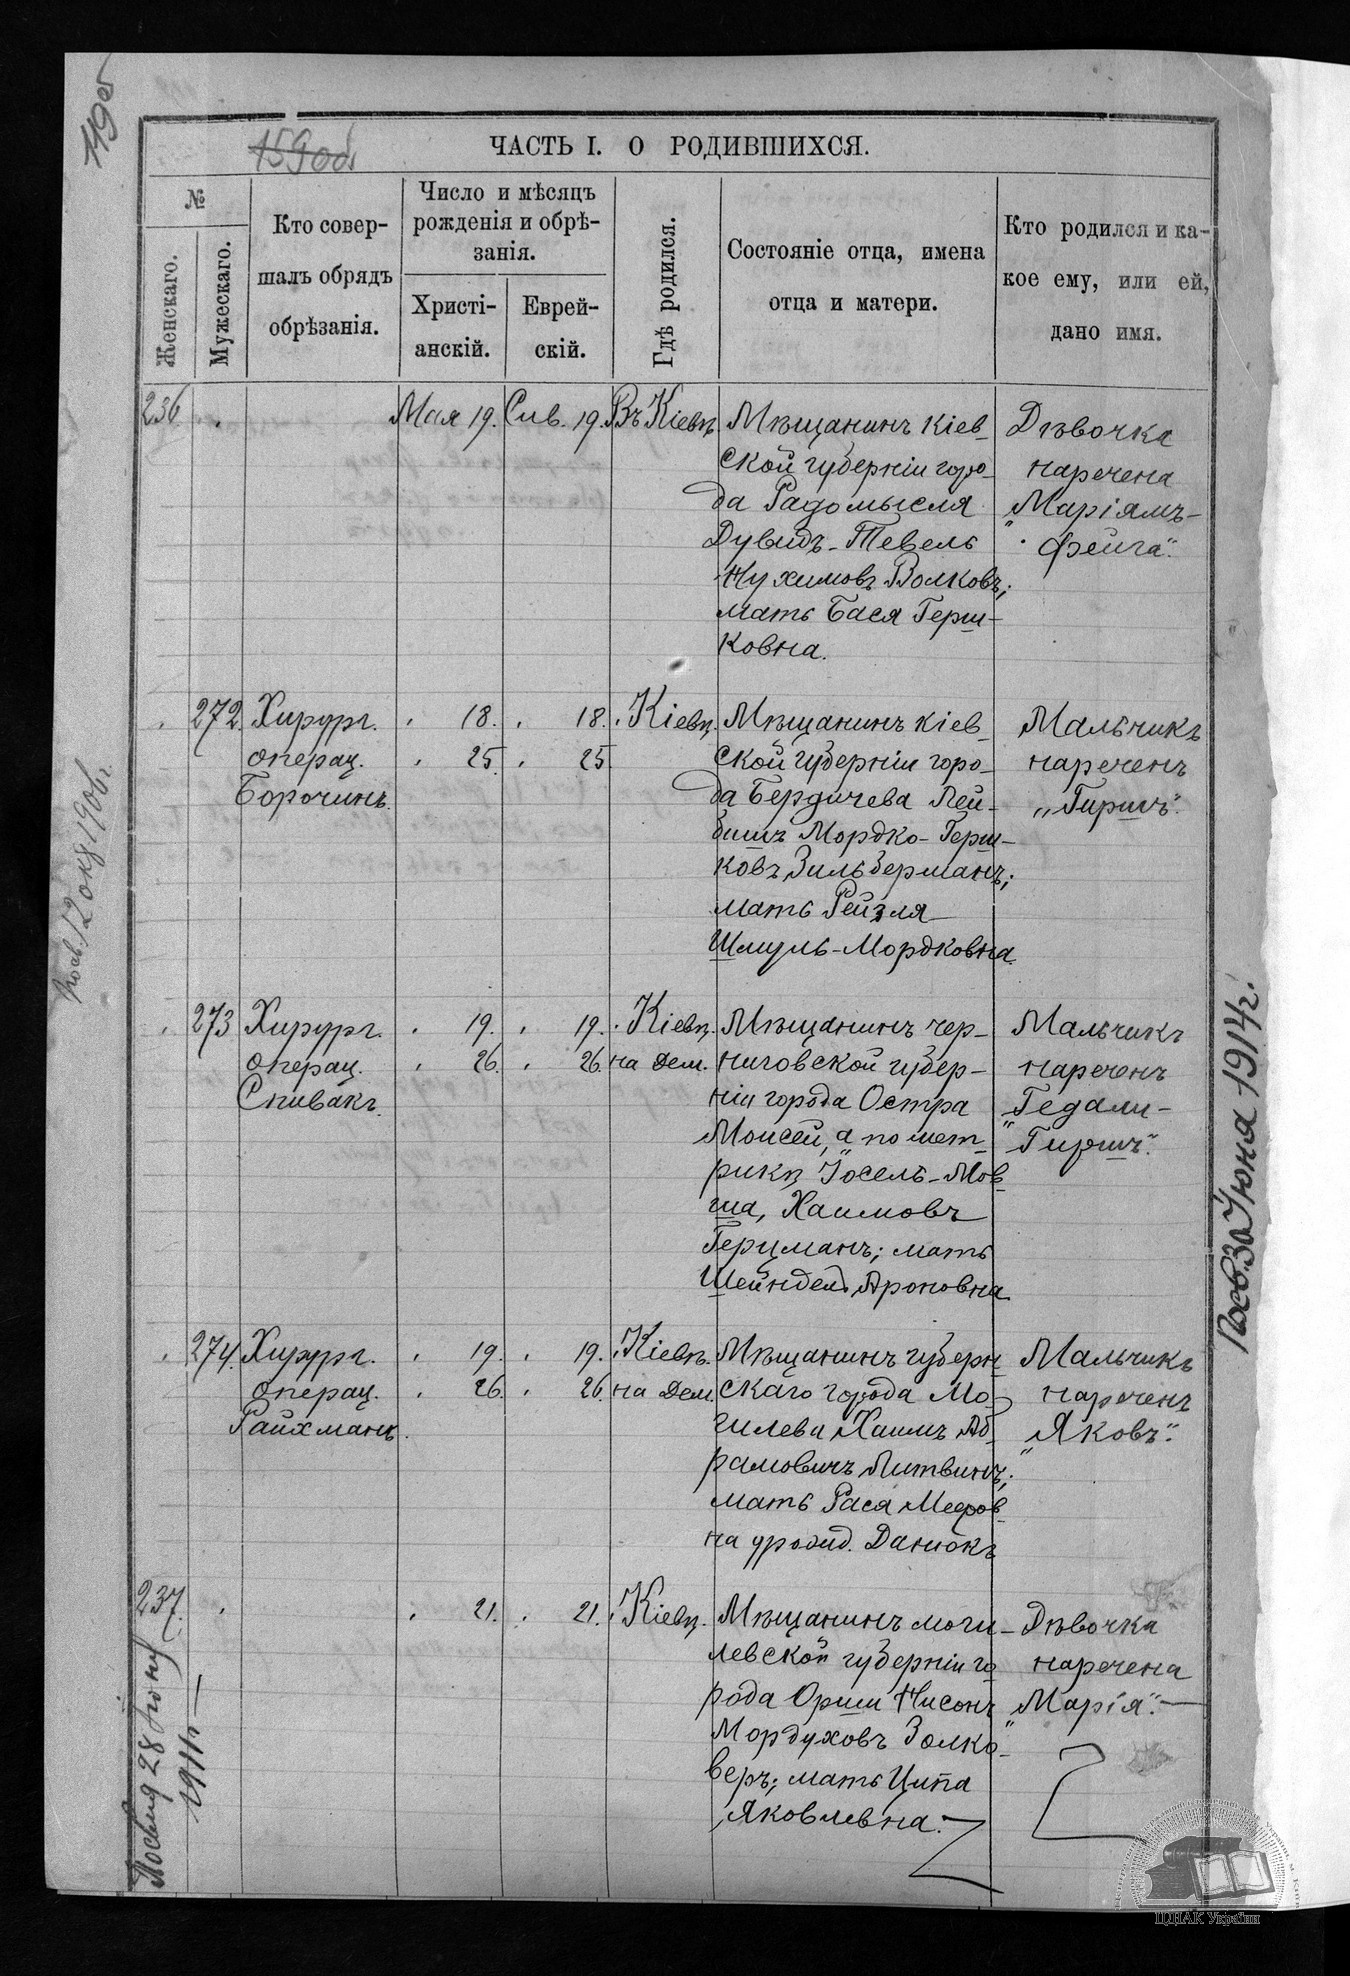 119об
159об
ЧАСТЬ I. О РОДИВШИХСЯ.
№
Женскаго.
Мужескаго.
Кто совер-
шалъ обрядъ
обрѣзанія.
Число и мѣсяцъ
рожденія и обрѣ-
занія.
Христі-
анскій.
Еврей-
скій.
Гдѣ родился.
Состояніе отца, имена
отца и матери.
Кто родился и ка-
кое ему, или ей,
дано имя.
236
Мая 19.
Сив. 19.
Въ Кіевѣ
Мѣщанинъ кіев-
ской губерніи горо-
да Радомысля
Дувидъ-Тевель
Нухимовъ Волковъ;
мать Бася Герш-
ковна.
Дѣвочка
наречена
„Маріямъ-
Фейга“.
272.
Хирург.
операц.
Борочинъ.
18.
25.
18.
25.
Кіевѣ.
Мѣщанинъ кіев-
ской губерніи горо-
да Бердичева Лей-
бишъ Мордко-Герш-
ковъ Зильберманъ;
мать Рейзля
Шмуль-Мордковна.
Мальчикъ
нареченъ
„Гиршъ“.
273
Хирург.
операц.
Спивакъ.
19.
26.
19.
26.
Кіевѣ.
на Дем.
Мѣщанинъ чер-
ниговской губер-
ніи города Остра
Моисей, а по мет-
рикѣ „Іосель-Мов-
ша, Хаимовъ
Герцманъ; мать
Шейндель Ароновна.
Мальчикъ
нареченъ
„Гедали-
Гиршъ“.
274.
Хирург.
операц.
Райхманъ.
19.
26.
19.
26.
Кіевѣ.
на Дем.
Мѣщанинъ губерн
скаго города Мо-
гилева Хаимъ Аб-
рамовичъ Литвинъ;
мать Рася Мееров-
на урожд. Данюкъ
Мальчикъ
нареченъ
„Яковъ“.
237.
21.
21.
Кіевѣ.
Мѣщанинъ моги-
левской губерніи го
рода Орши Нисонъ
Мордуховъ Золко-
веръ; мать Ципа
Яковлевна.
Дѣвочка
наречена
„Марія“.
12 окт 1906 г.
28
1911 г.
30 Іюня 1914 г.
ЦДІАК України